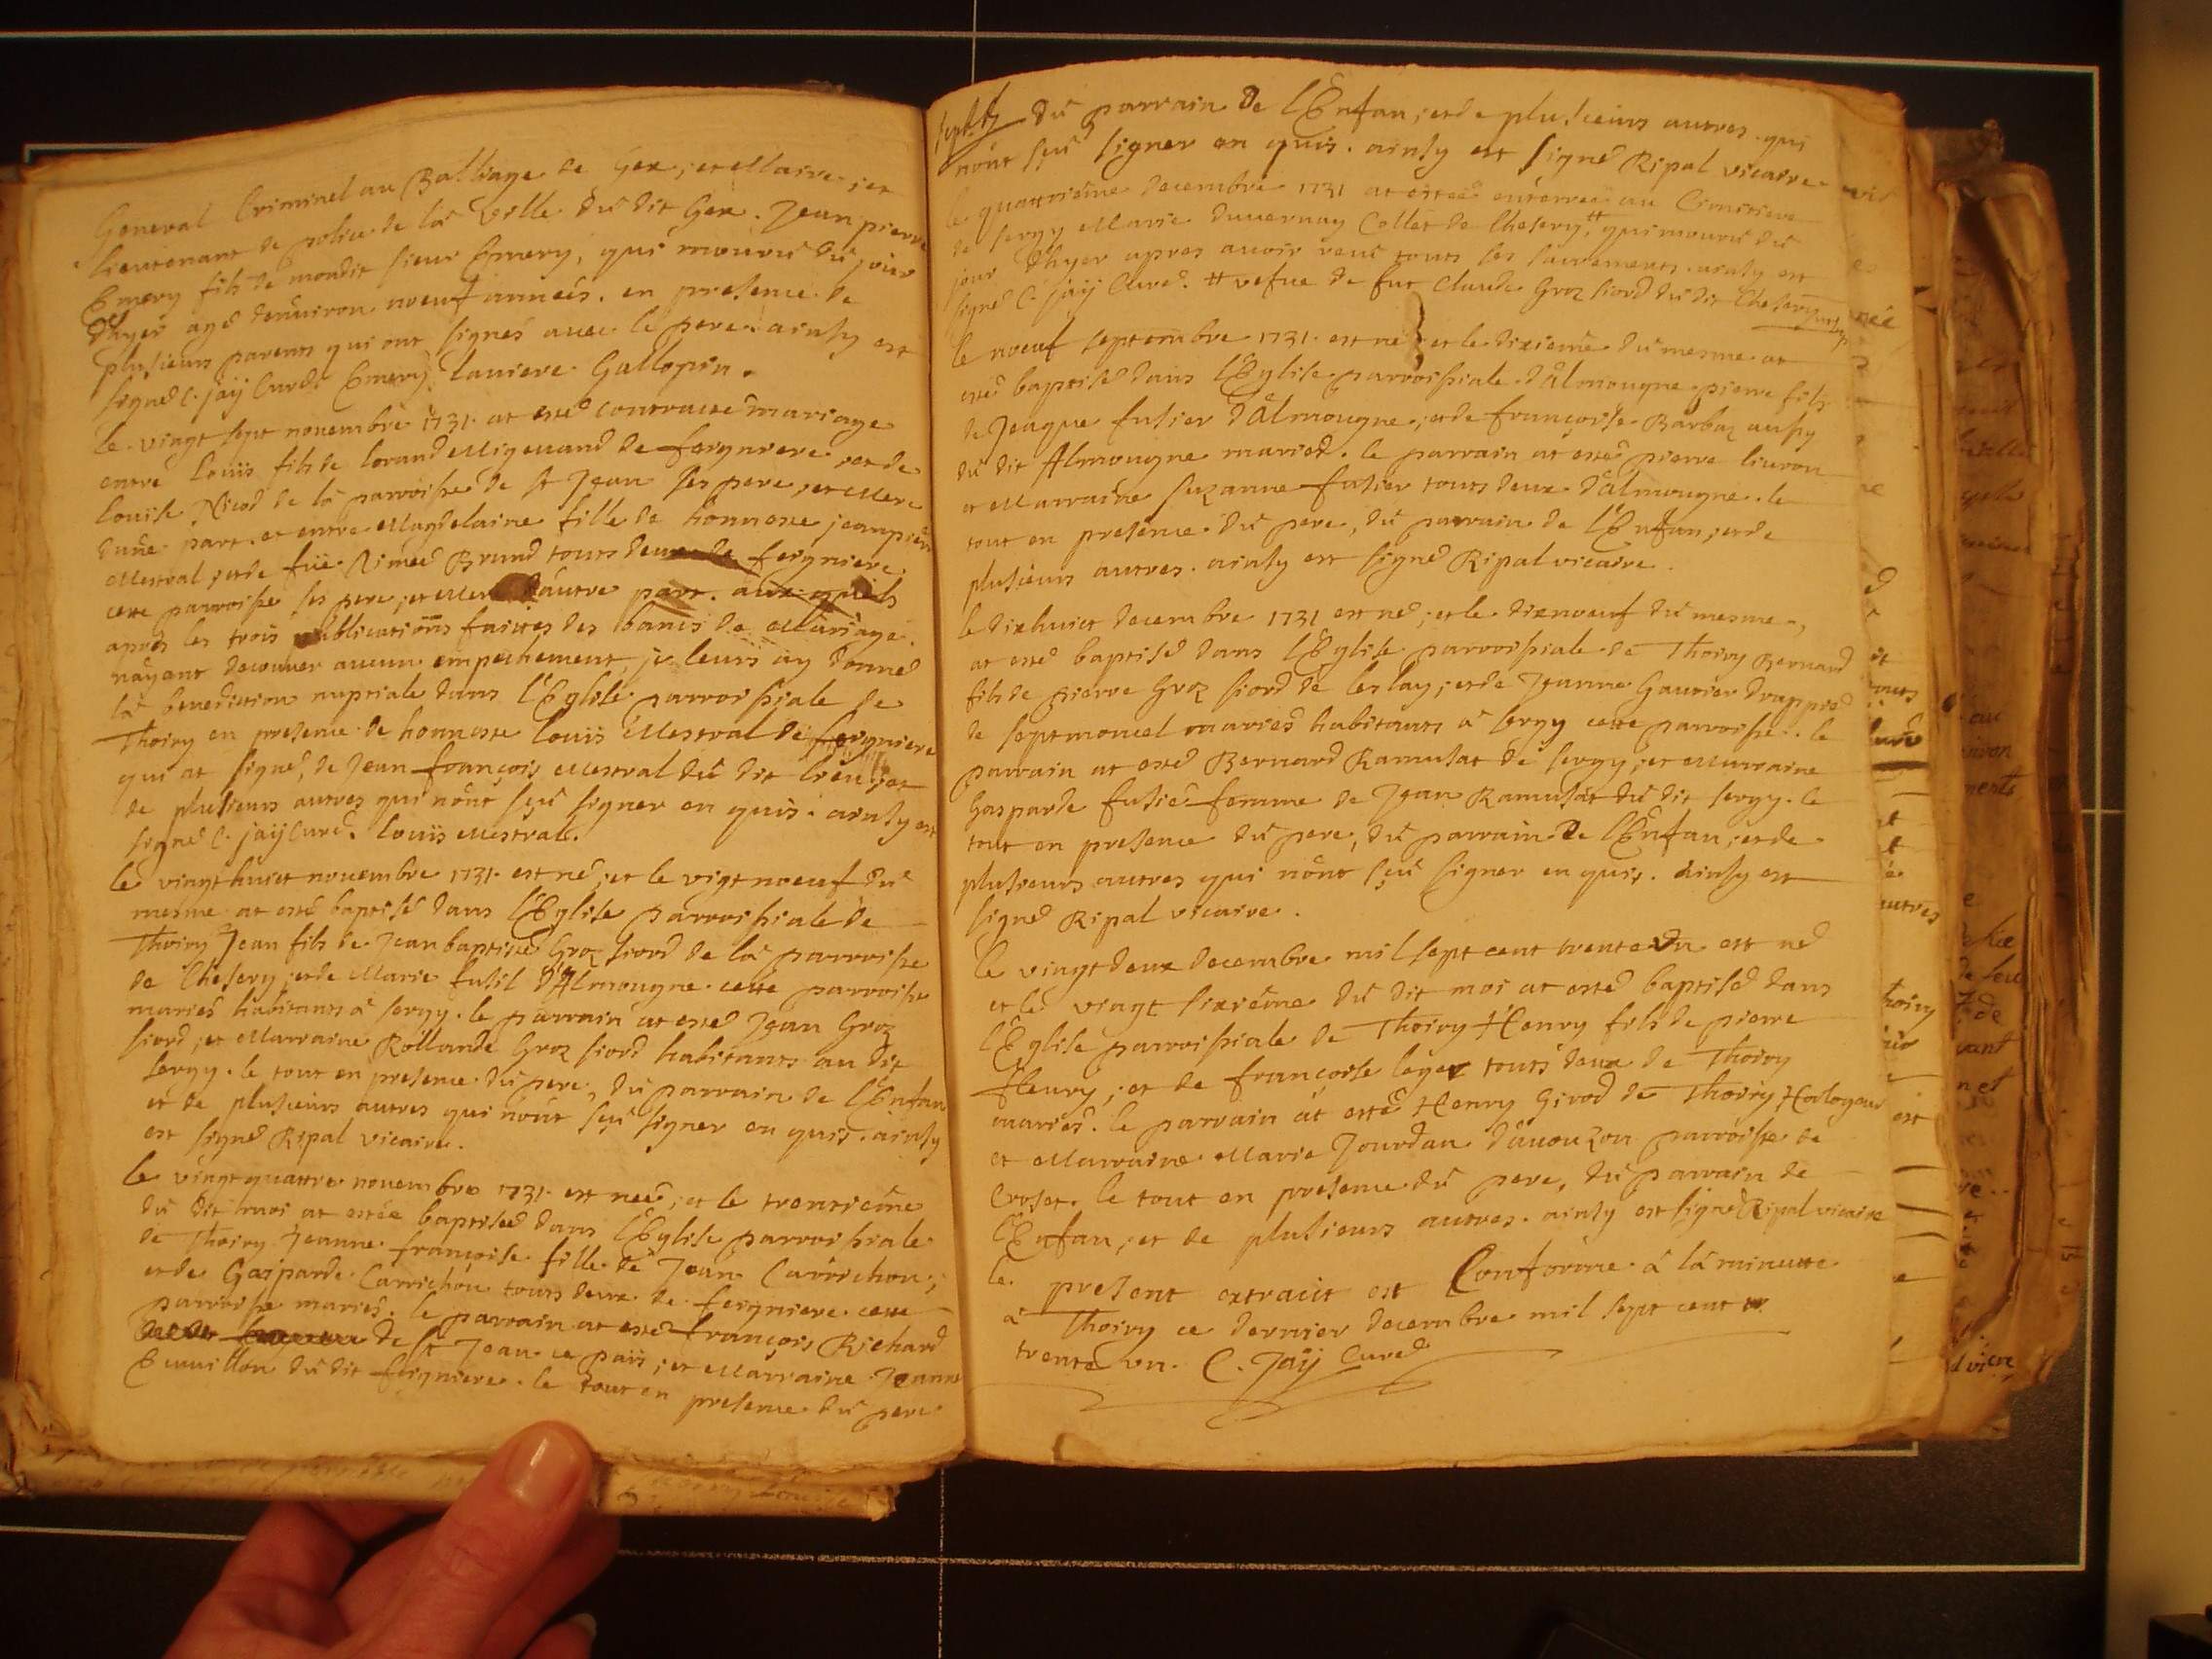 General Criminel au Balliage de Gex ; et Maire ; et
Lieutenant de police de là Ville dŭ dit Gex . Jean pierre
Emery fils de mondit sieur Emery, qui mourŭ dŭ jour
d'hyer agé denuiron noeuf années . en presence de
plusieurs parents qui ont signés auec le pere . ainsy est
signé C. jaÿ Curé Emery Lauiere Gallopin .
le vingt sept nouembre 1731 . at esté contracté mariage
entre Louïs fils de lorand Migeuand de feigniere ; et de
Louise Nicod de là parroisse de st Jean ses pere ; et Mere
d'une part . et entre Magdelaine fille de honneste jean pierre
Mestral ; et de füe Aimée Brund touts deux de feigniere
cette parroisse ses pere ; et Mere d'autre part .
apres les trois publications faittes des bancs de Mariage
n'ayant decouuer aucun empechement, je leurs ay donné
là benediction nuptiale dans l'Eglise parroissiale de
Thoiry en presence de honneste Louïs Mestral de feigniere
qui at signé, de Jean françois Mestral dŭ dit lieu ; et
de plusieurs autres qui n'ont sçŭ signer en quis . ainsy est
signé C. jaÿ Curé . Louïs Mestral .
le vingt huict nouembre 1731 . est né ; et le vigt noeuf dŭ
mesme at esté baptisé dans l'Eglise parroissiale de
Thoiry Jean fils de Jean baptiste Groz fiord de là parroisse
de Chesery ; et de Marie fusil d'Almougne cette parroisse
mariés habitants à sergy . le parrain at esté Jean Groz
fiord ; et Marraine Rollande Groz fiord habitants au dit
sergy . le tout en presence dŭ pere, dŭ parrain de l'Enfan
et de plusieurs autres qui n'ont sçŭ signer en quis . ainsy
est signé Ripal vicaire .
le vingt quattre nouembre 1731 . est neé ; et le trentiéme
dŭ dit moi at estée baptisée dans l'Eglise parroissiale
de Thoiry Jeanne françoise fille de Jean Carrichon ;
et de Gasparde Carrichon touts deux de feigniere cette
parroisse mariés . le parrain at esté françois Richard
de st Jean ce païs ; et Marraine Jeanne
Euuillon dŭ dit feigniere . le tout en presence dŭ pere
dŭ parrain de l'Enfan ; et de plusieurs autres qui
n'ont sçŭ signer en quis . ainsy est signé Ripal vicaire
le quattriéme decembre 1731 at estée enterrée au Cimitiere
de sergy Marie duuernay Collet de Chesery, # qui mourŭ dŭ
jour d'hyer apres auoir receu touts ses sacrements . ainsy est
signé C. jaÿ Curé . # vefue de fut Claude Groz fiord dŭ dit Chesery
le noeuf septembre 1731 . est né ; et le dixieme dŭ mesme at
esté baptisé dans l'Eglise parroissiale d'Almougne pierre fils
de Jeaque fusier d'Almougne ; et de françoise Barbaz aussy
dŭ dit Almougne mariés . le parrain at esté pierre liuron
et Marraine suzanne fusier touts deux d'almougne . le
tout en presence dŭ pere, dŭ parrain de l'Enfan ; et de
plusieurs autres . ainsy est signé Ripal vicaire .
le dixhuict decembre 1731 est né ; et le dixnoeuf dŭ mesme
at esté baptisé dans l'Eglise parroissiale de Thoiry Bernard
fils de pierre Groz fiord de leslay ; et de Jeanne Gautier drappied
de septmoncel mariés habitants à sergy cette parroisse . le
parrain at esté Bernard Ramusat de sergy ; et Marraine
Gasparde fusier femme de Jean Ramusat dŭ dit sergy . le
tout en presence dŭ pere, dŭ parrain de l'Enfan ; et de
plusieurs autres qui n'ont sçŭ signer en quis . ainsy est
signé Ripal vicaire .
le vingt deux decembre mil sept cent trente vn est né
et le vingt sixiéme dŭ dit moi at esté baptisé dans
l'Eglise parroissiale de Thoiry Henry fils de pierre
fleury ; et de françoise leger touts deux de Thoiry
mariés . le parrain at esté Henry Girod de Thoiry Horlogeur
et Marraine Marie Jourdan d'auouzon parroisse de
Croset . le tout en presence dŭ pere, dŭ parrain de
l'Enfan ; et de plusieurs autres . ainsy est signé Ripal vicaire
le present extraict est Conforme à là minutte
à Thoiry ce dernier decembre mil sept cent
trente vn . C. Jaÿ Curé